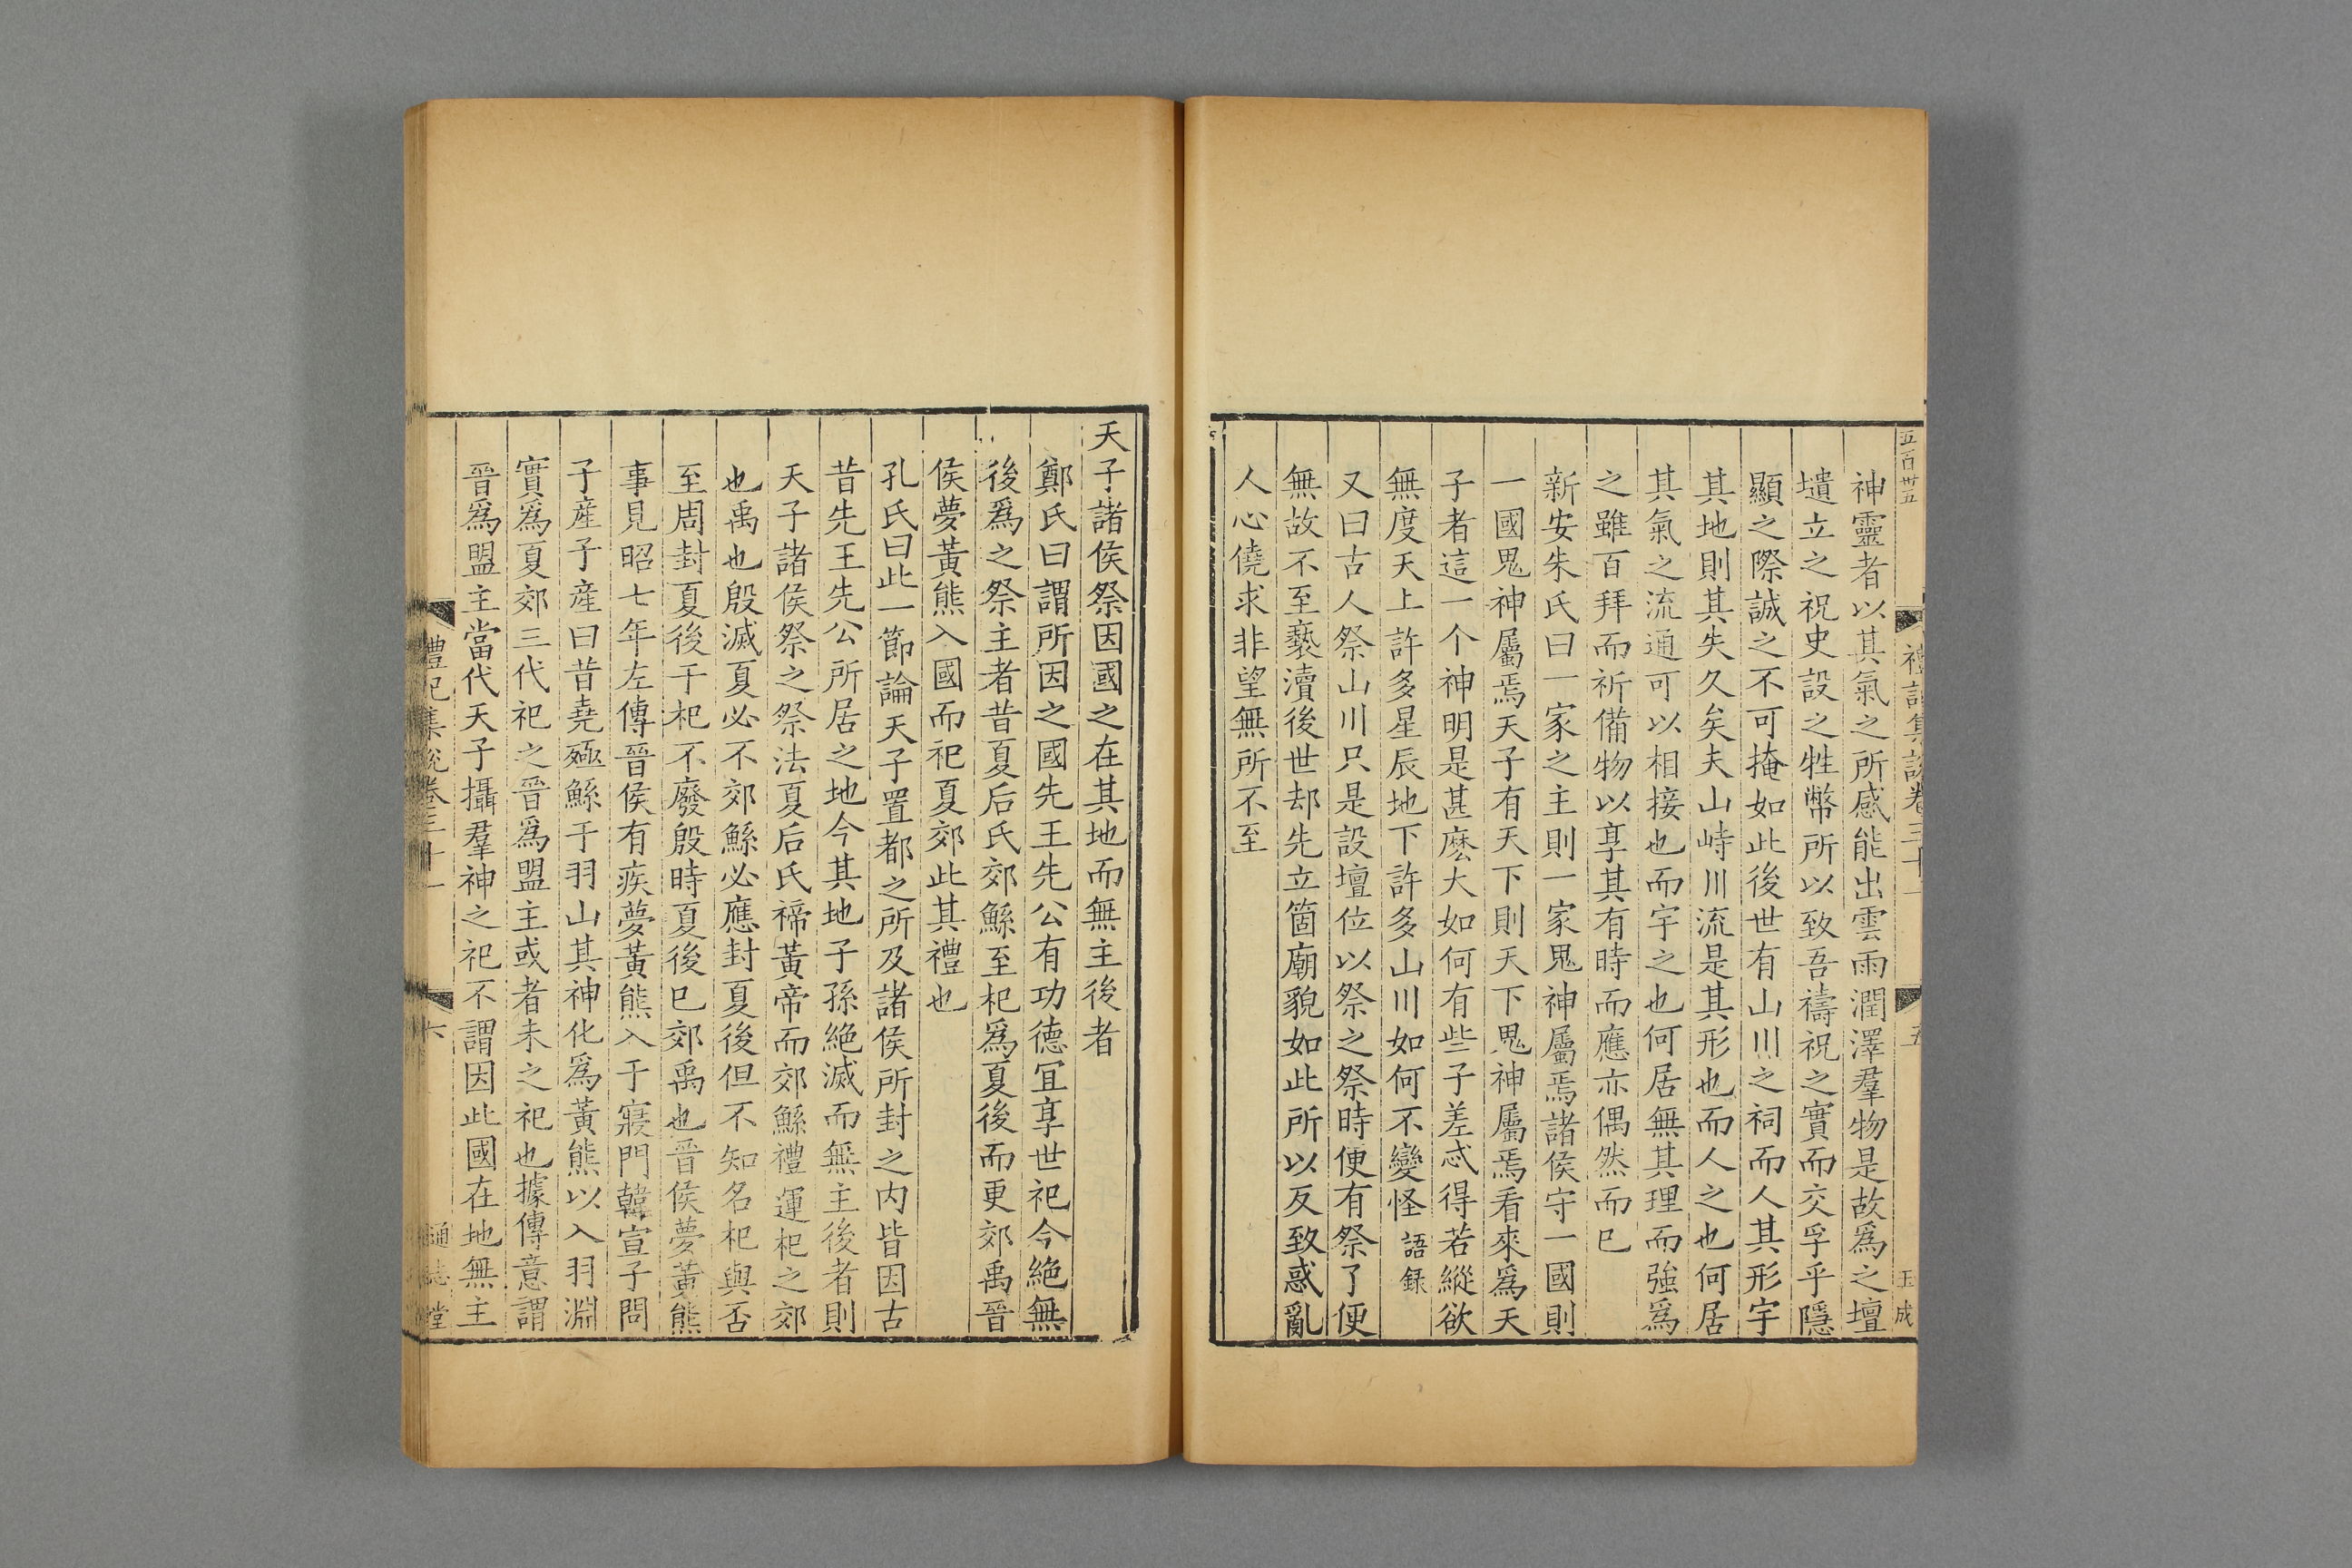 五百卅五
禮記集說卷三十一
五
玉成
神靈者以其氣之所感能出雲雨潤澤羣物是故爲之壇
壝立之祝史設之牲幣所以致吾禱祝之實而交孚乎隱
顯之際誠之不可掩如此後世有山川之祠而人其形宇
其地則其失久矣夫山峙川流是其形也而人之也何居
其氣之流通可以相接也而宇之也何居無其理而強爲
之雖百拜而祈備物以享其有時而應亦偶然而已
新安朱氏曰一家之主則一家鬼神屬焉諸侯守一國則
一國鬼神屬焉天子有天下則天下鬼神屬焉看來爲天
子者這一个神明是甚麽大如何有些子差忒得若縱欲
無度天上許多星辰地下許多山川如何不變怪語録
又曰古人祭山川只是設壇位以祭之祭時便有祭了便
無故不至褻瀆後世却先立箇廟貌如此所以反致惑亂
人心僥求非望無所不至
天子諸侯祭因國之在其地而無主後者
鄭氏曰謂所因之國先王先公有功德宜享世祀今絶無
後爲之祭主者昔夏后氏郊鯀至杞爲夏後而更郊禹晉
侯夢黃熊入國而祀夏郊此其禮也
孔氏曰此一節論天子置都之所及諸侯所封之内皆因古
昔先王先公所居之地今其地子孫絶滅而無主後者則
天子諸侯祭之祭法夏后氏禘黃帝而郊鯀禮運杞之郊
也禹也殷滅夏必不郊鯀必應封夏後但不知名杞與否
至周封夏後于杞不廢殷時夏後已郊禹也晉侯夢黃熊
事見昭七年左傳晉侯有疾夢黃熊入于寢門韓宣子問
子産子産曰昔堯殛鯀于羽山其神化爲黃熊以入羽淵
實爲夏郊三代祀之晉爲盟主或者未之祀也據傳意謂
晉爲盟主當代天子攝羣神之祀不謂因此國在地無主
禮記集說卷三十一
六
通志堂